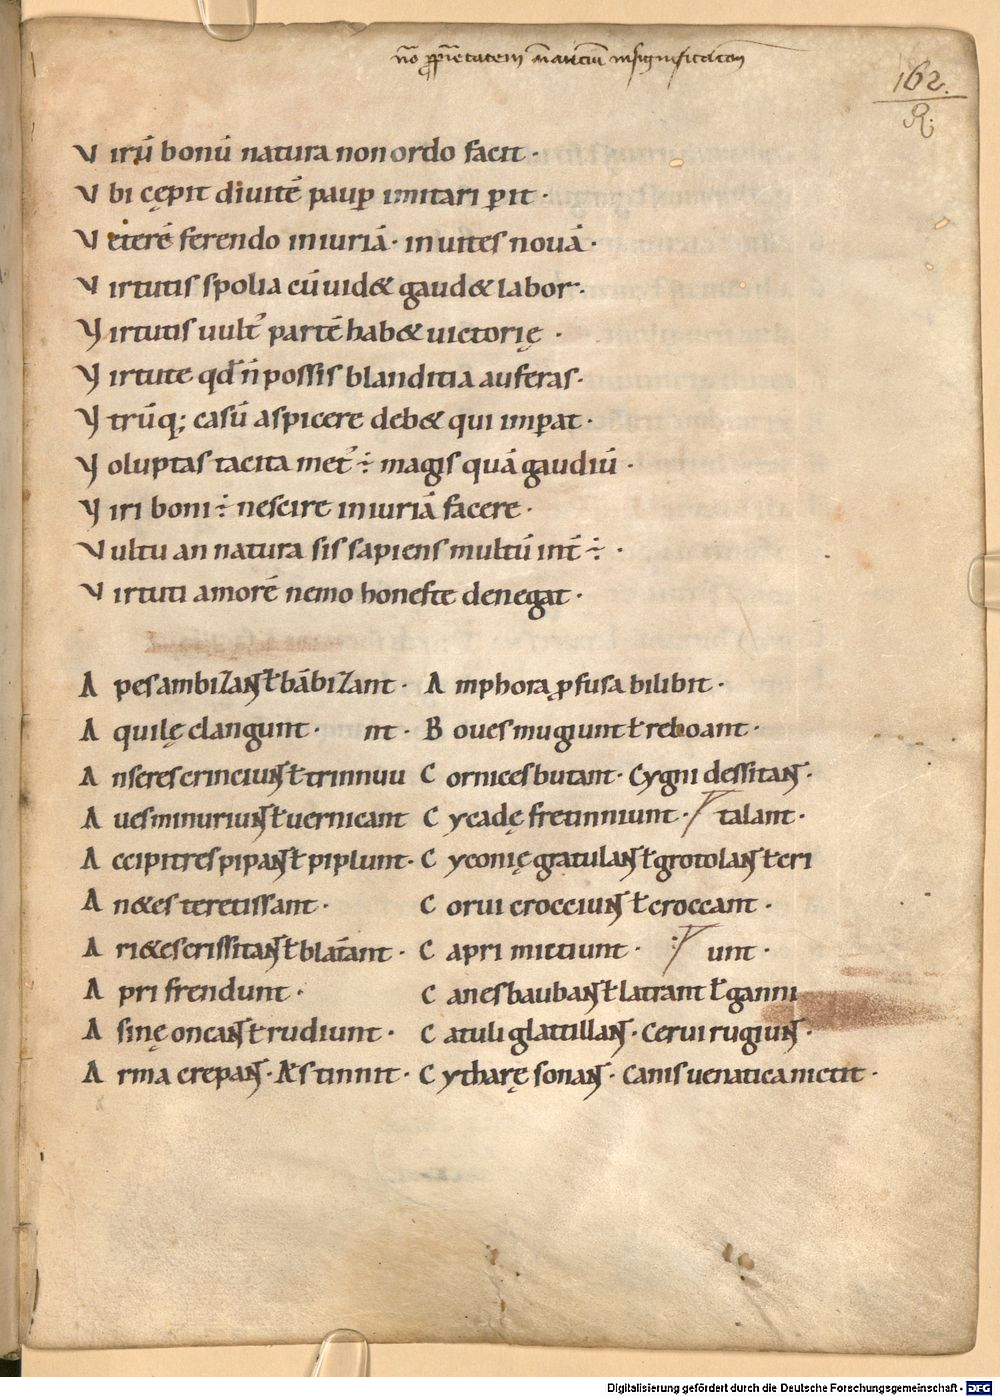 162.
R.
V irū bonū natura non ordo facit ·
V bi cępit diuitē paup̄ imitari ꝑit ·
V eterē ferendo iniuriā · inuites nouā ·
V irtutis spolia cū uid& gaud& labor ·
V irtutis uult᷒ partē hab& uictorię ·
V irtute qd̄ n̄ possis blanditia auferas ·
V trūq; casū aspicere deb& qui imꝑat ·
V oluptas tacita met᷒ ÷ magis quā gaudiū ·
V iri boni ÷ nescire iniuriā facere ·
V ultu an natura sis sapiens multū int̄ ÷ ·
V irtuti amorē nemo honeste denegat ·
A pes ambizant ł bābizant · A mphora ꝓfusa bilibit ·
A quilę clangunt · nt · B oues mugiunt ł reboant ·
A nseres crinciunt ł trinnuu C ornices butant · Cygni dessitant ·
A ues minuriunt ł uernicant C ycadę fretinniunt · talant ·
A ccipitres pipant ł piplunt · C yconię gratulant ł grotolant ł cri
A n&es teretissant · C orui crocciunt ł croccant ·
A ri&es crissitant ł blat̄ant · C apri mictiunt · unt ·
A pri frendunt · C anes baubant ł latrant ł ganni
A sinę oncant ł rudiunt · C atuli glattillant · Cerui rugiunt ·
A rma crepant · Æs tinnit · C ytharę sonant · Canis uenatica nictit ·
Digitalisierung gefördert durch die Deutsche Forschungsgemeinschaft - DFG